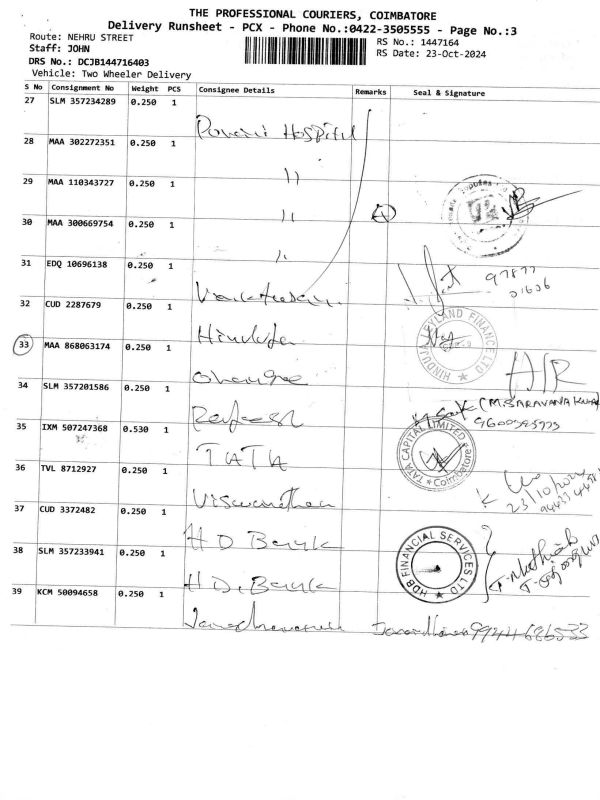 THE PROFESSIONAL COURIERS, COIMBATORE
Delivery Runsheet - PCX - Phone No.:0422-3505555 - Page No.:3
Route: NEHRU STREET
RS No.: 1447164
Staff: JOHN
RS Date: 23-Oct-2024
DRS No.: DCJB144716403
Vehicle: Two Wheeler Delivery
S No Consignment No Weight PCS Consignee Details Remarks Seal & Signature
27 SLM 357234289 0.250 1
Hospital
28 MAA 302272351 0.250 1
"
29 MAA 110343727 0.250 1
"
30 MAA 300669754 0.250 1
"
31 EDQ 10696138 0.250 1
97877
01606
32 CUD 2287679 0.250 1
Hinduja
HINDUJA LEYLAND FINANCE LTD
33 MAA 868063174 0.250 1
34 SLM 357201586 0.250 1
Rajesh
(M.SARAVANA KUMAR
35 IXM 507247368 0.530 1
TATA
TATA CAPITAL LIMITED
Coimbatore
36 TVL 8712927 0.250 1
Viswanathan
23/10/2024
37 CUD 3372482 0.250 1
H D Bank
HDB FINANCIAL SERVICES LTD
38 SLM 357233941 0.250 1
H D. Bank
39 KCM 50094658 0.250 1
9944686533